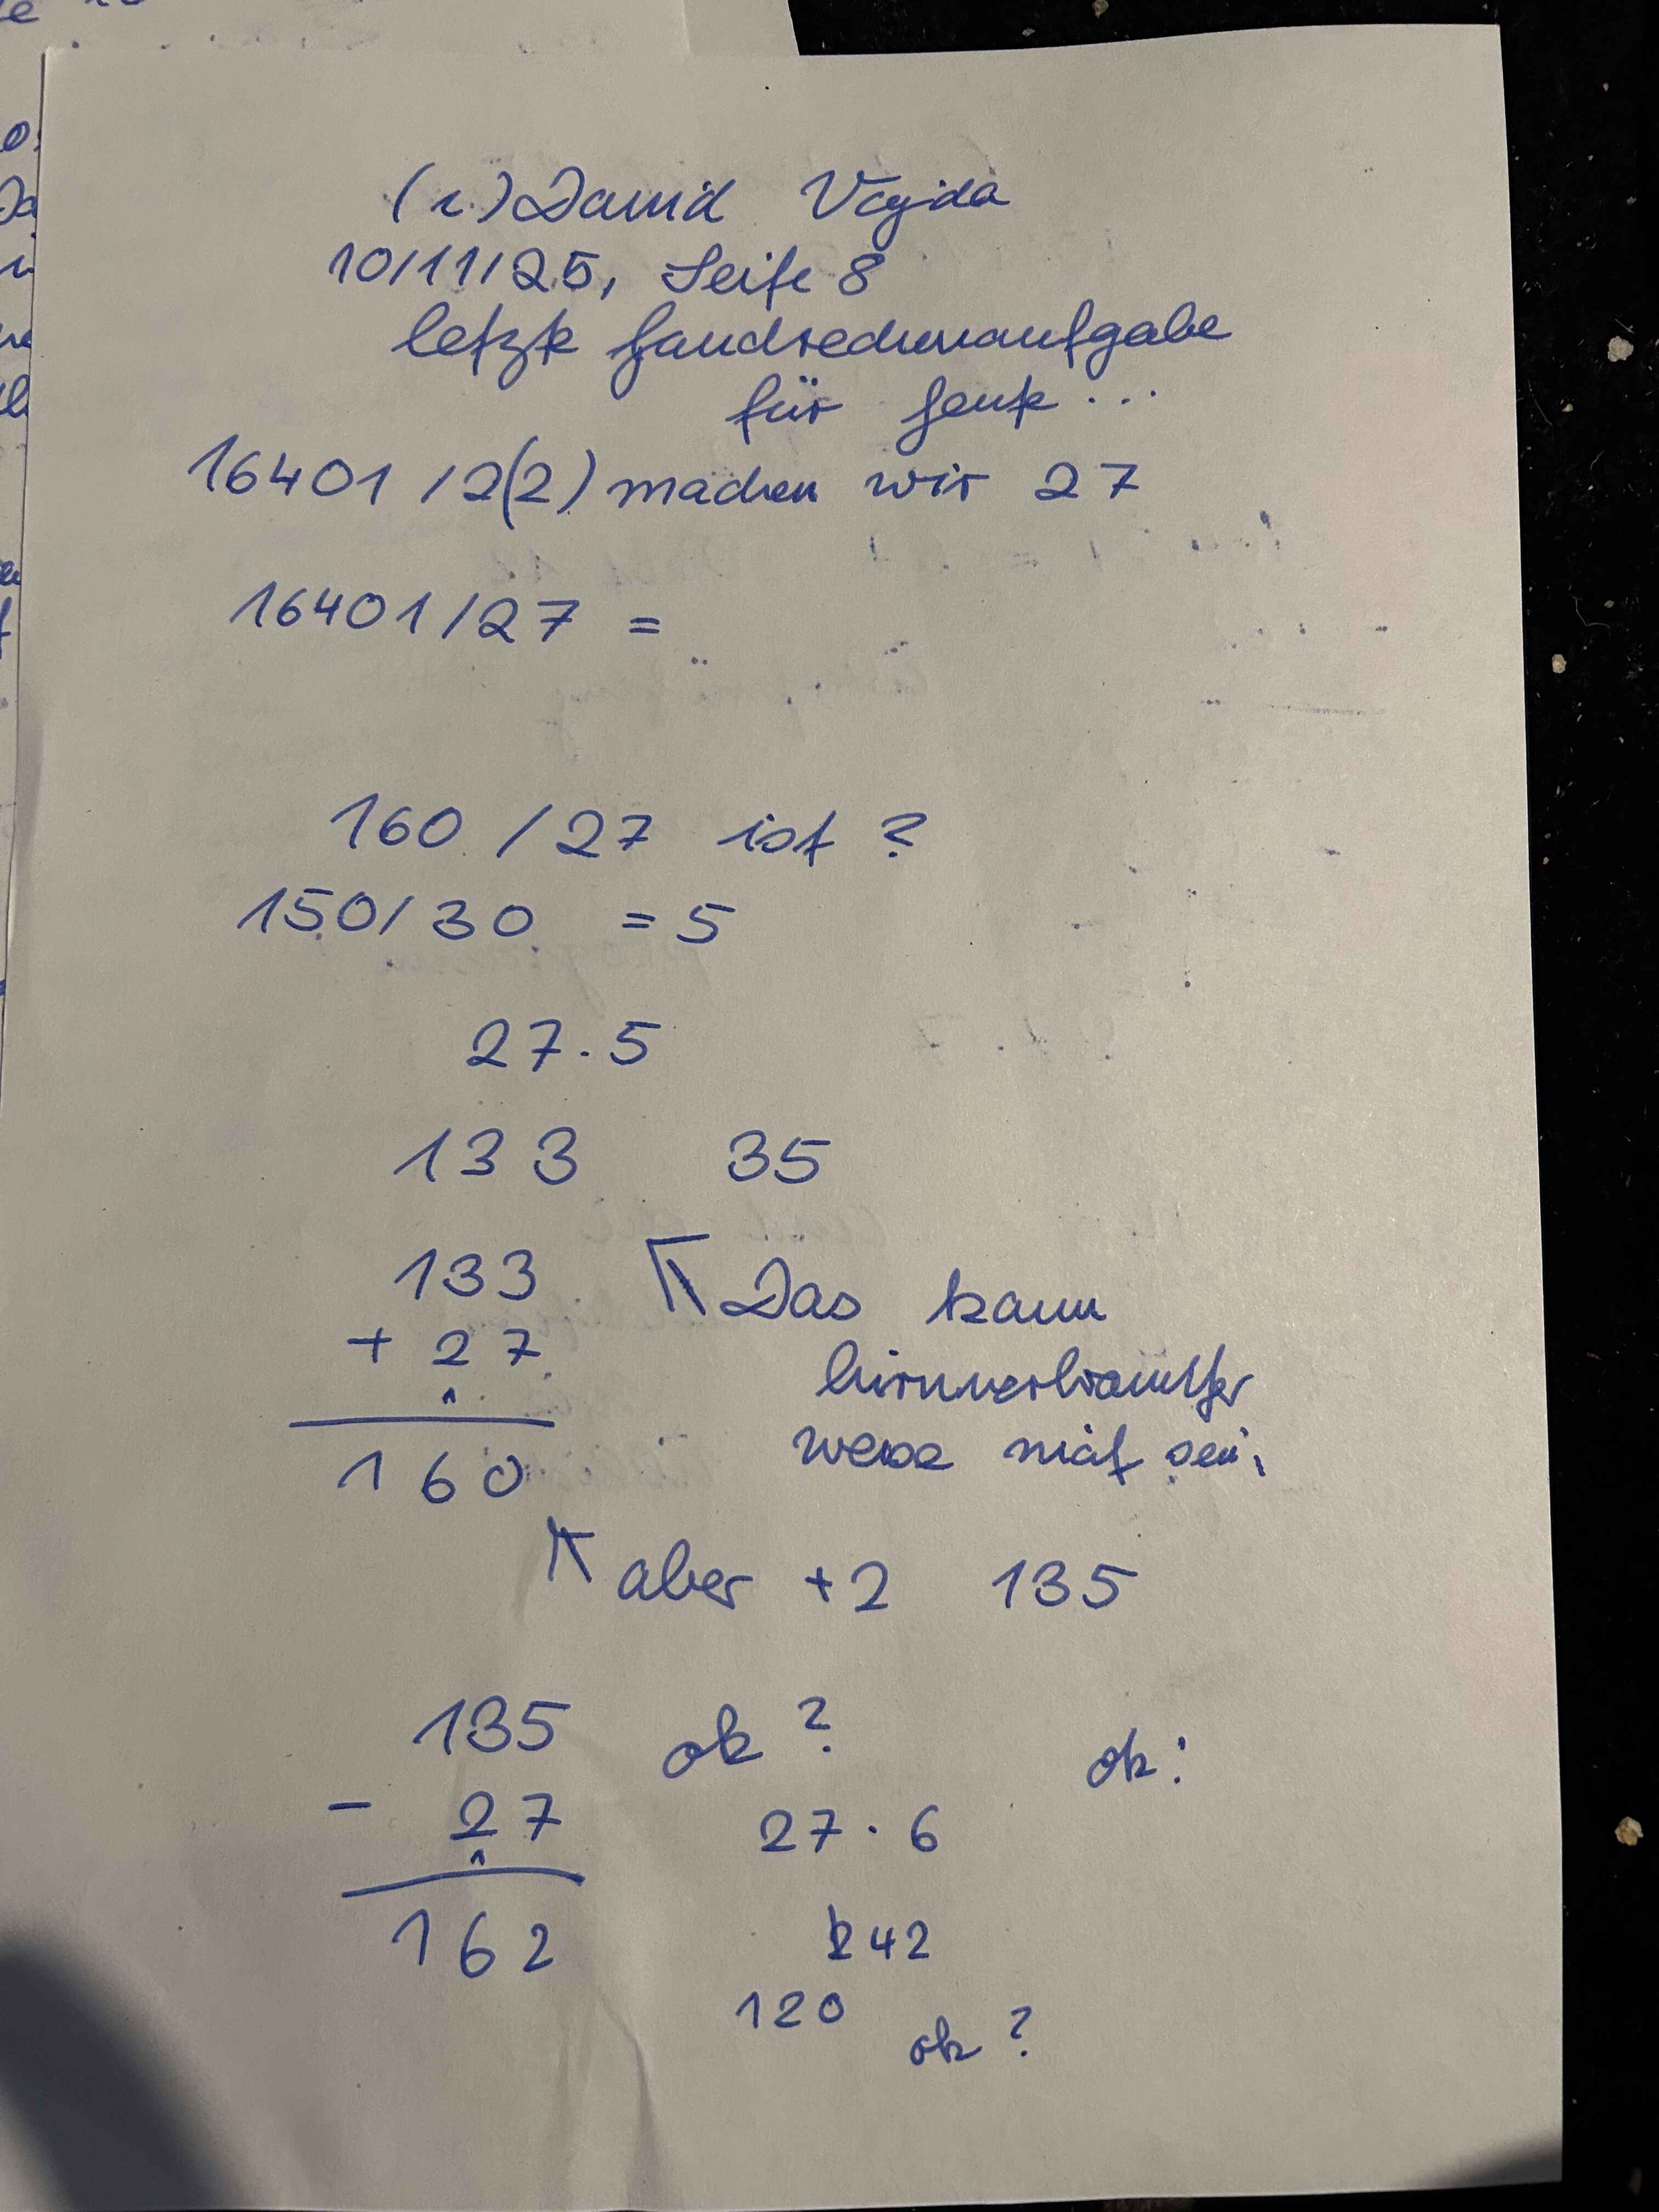 (c) David Vajda
10/11/25, Seite 8
letzte Handrechenaufgabe
für heute ...
16401 /2(2) machen wir 27
16401/27 =
160 / 27 ist ?
150/30 = 5
27.5
133 35
133
+ 27
160
Das kann
hirnverbrannter
weise nicht sein,
aber +2 135
135 ok ? ok :
- 27
27 . 6
162
242
120
ok ?